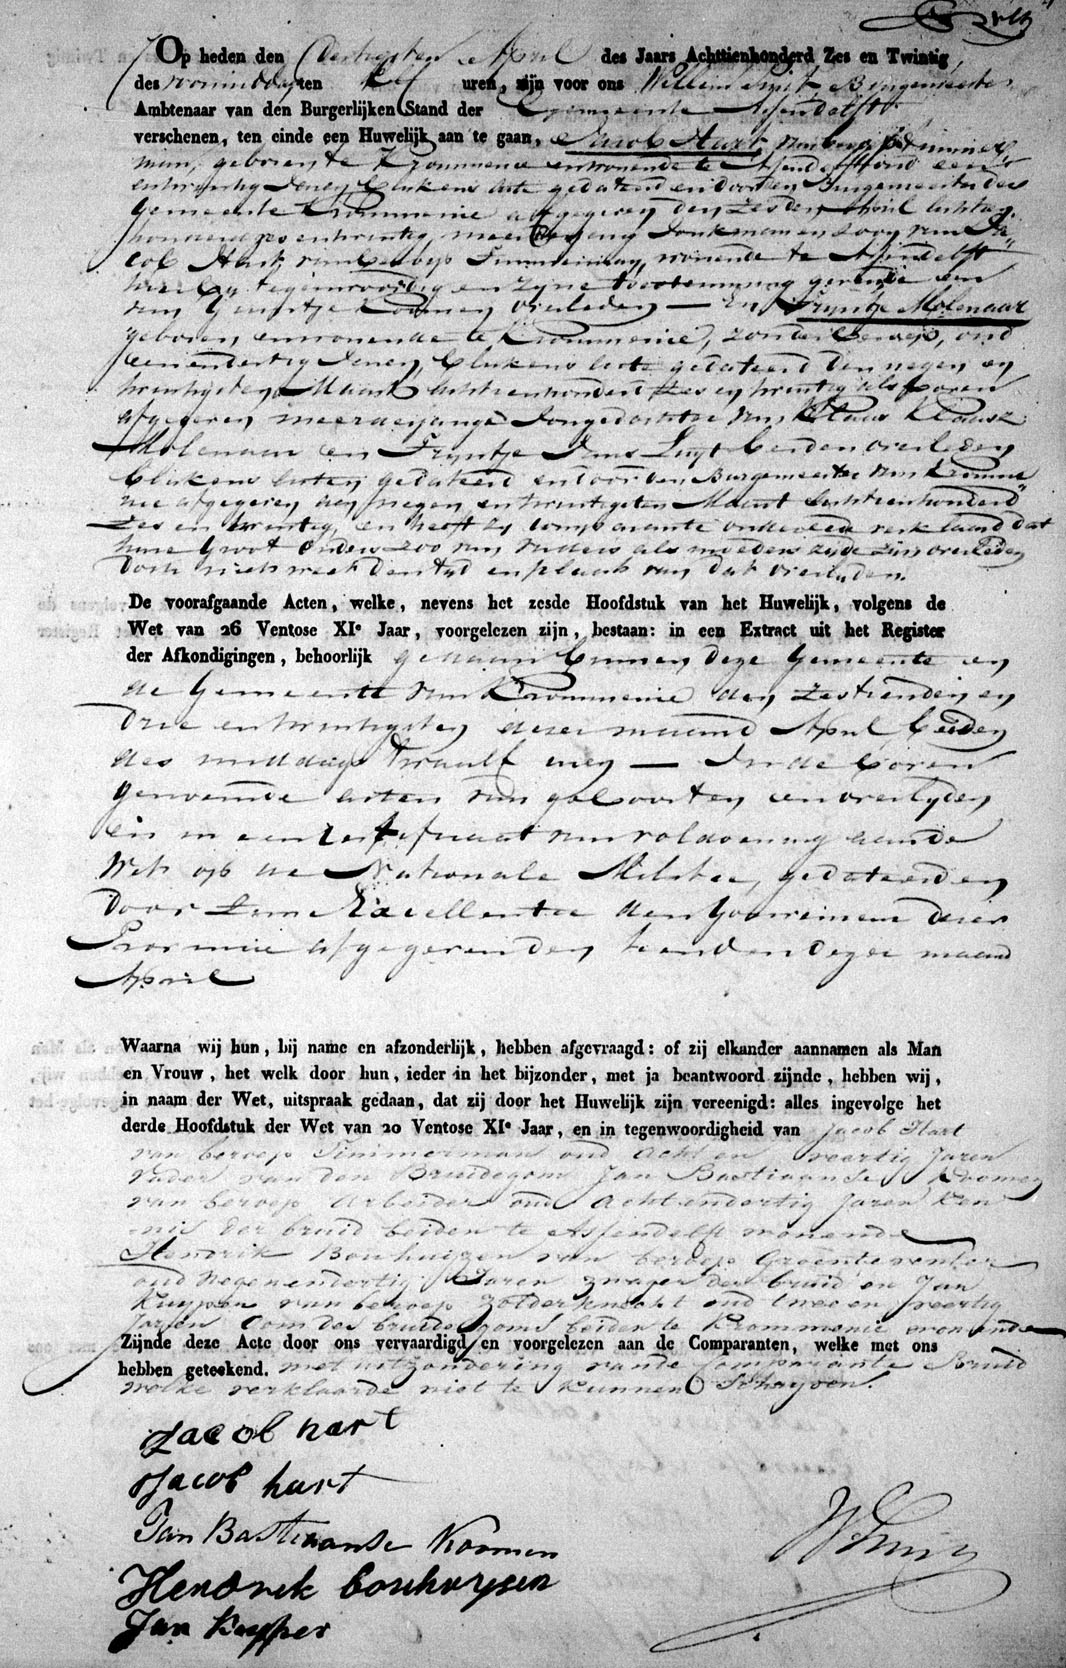 Op heden den Dertigsten April des Jaars Achttienhonderd Zes en Twintig
des voormiddags ten Elf uren, zijn voor ons Willem Smit Burgemeester
Ambtenaar van den Burgerlijken Stand der Gemeente Assendelft
verschenen, ten einde een Huwelijk aan te gaan, Jacob Hart van beroep Timmer
man, geboren te Krommenie en wonende te Assendelft oud een
en twintig Jaren, blykens acte gedateerd en door den Burgemeester der
Gemeente Krommenie afgegeven den zesden April achttien
honderd zes en twintig, meerderjarig Jonkman en zoon van Ja
cob Hart van beroep Timmerman, wonende te Assendelft
hier by tegenwoordig en zyne toestemming gevende en
van Guurtje Koomen overleden — En Tryntje Molenaar
geboren en wonende te Krommenie, zonder beroep, oud
een en dertig Jaren, blykens acte gedateerd den negen en
twintigsten Maart achttienhonderd zes en twintig als boven
afgegeven meerderjarige Jongedochter van Klaas Klaasz
Molenaar en Tryntje Jans Luyt beiden overleden
blykens acten gedateerd en door den Burgemeester van Kromme
nie afgegeven den negen en twintigsten Maart achttienhonderd
zes en twintig, en heeft zy comparante onder eede verklaard dat
hare Groot Ouders zoo van vaders als moeders zyde zijn overleden
doch niet weet den tyd en plaats van dat overlyden.
De voorafgaande Acten, welke, nevens het zesde Hoofdstuk van het Huwelijk, volgens de
Wet van 26 Ventose XIe Jaar, voorgelezen zijn, bestaan: in een Extract uit het Register
der Afkondigingen, behoorlijk gedaan binnen deze Gemeente en
de Gemeente van Krommenie den zestienden en
drie en twintigsten dezer maand April, beiden
des middags twaalf uren — In de boven
genoemde acten van geboorten en overlyden
en in een certificaat van voldoening aan de
Wet op de Nationale Militie, gedateerd en
door Zyne Excellentie den Gouverneur dezer
Provincie afgegeven den tienden dezer maand
April
Waarna wij hun, bij name en afzonderlijk, hebben afgevraagd: of zij elkander aannamen als Man
en Vrouw, het welk door hun, ieder in het bijzonder, met ja beantwoord zijnde, hebben wij,
in naam der Wet, uitspraak gedaan, dat zij door het Huwelijk zijn vereenigd: alles ingevolge het
derde Hoofdstuk der Wet van 20 Ventose XIe Jaar, en in tegenwoordigheid van Jacob Hart
van beroep Timmerman oud acht en veertig Jaren
vader van den Bruidegom Jan Bastiaanse Koomen
van beroep Arbeider oud Achtendertig Jaren Ken
nis der bruid beiden te Assendelft wonende
Hendrik Boschuizen van beroep Groenteventer
oud negenendertig Jaren zwager der bruid en Jan
Kuyper van beroep Zolderknecht oud twee en veertig
Jaren Oom des bruidegoms beiden te Krommenie wonende
Zijnde deze Acte door ons vervaardigd en voorgelezen aan de Comparanten, welke met ons
hebben geteekend. met uitzondering van de Comparante Bruid
welke verklaarde niet te kunnen Schryven.
Jacob hart
Jacob hart
Jan Bastiaanse Koomen
Hendrik boschuysen
Jan Kuyper
W Smit